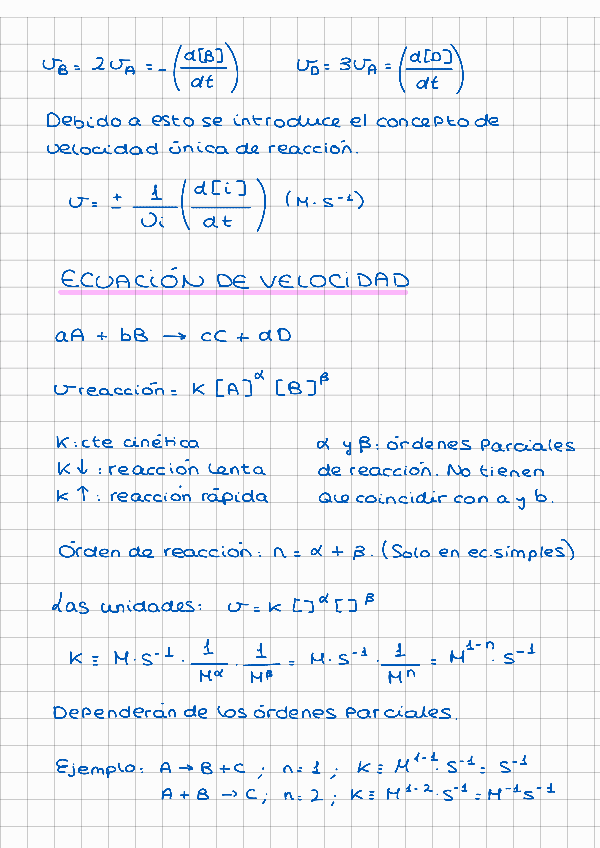 υB = 2υA = -(d[B]/dt)    υD = 3υA = (d[D]/dt)
Debido a esto se introduce el concepto de
velocidad única de reacción.
υ = ± 1/υi (d[i]/dt) (M·s⁻¹)
ECUACIÓN DE VELOCIDAD
aA + bB → cC + dD
υreacción = K [A]^α [B]^β
K: cte cinética
K↓: reacción lenta
K↑: reacción rápida
α y β: órdenes parciales
de reacción. No tienen
que coincidir con a y b.
Orden de reacción: n = α + β. (Solo en ec. simples)
Las unidades: υ = K []^α []^β
K ≡ M·s⁻¹ · 1/M^α · 1/M^β = M·s⁻¹ · 1/M^n = M^(1-n) · s⁻¹
Dependerán de los órdenes parciales.
Ejemplo: A → B + C ; n = 1 ; K ≡ M^(1-1) · s⁻¹ = s⁻¹
A + B → C ; n = 2 ; K ≡ M^(1-2) · s⁻¹ = M⁻¹s⁻¹